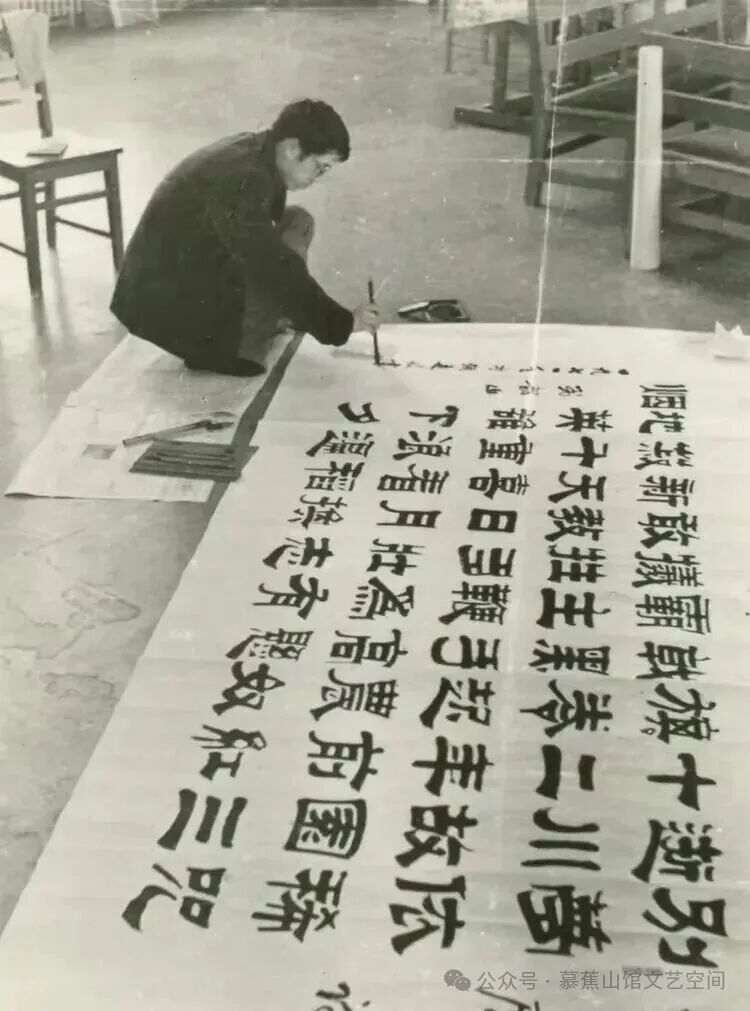 别夢依稀咒
逝川故園三
十二年前紅
旗卷起農奴
戟黑手高懸
霸主鞭爲有
犧牲多壯志
敢教日月換
新天喜看稻
菽千重浪遍
地英雄下夕
烟
公众号·慕蕉山馆文艺空间